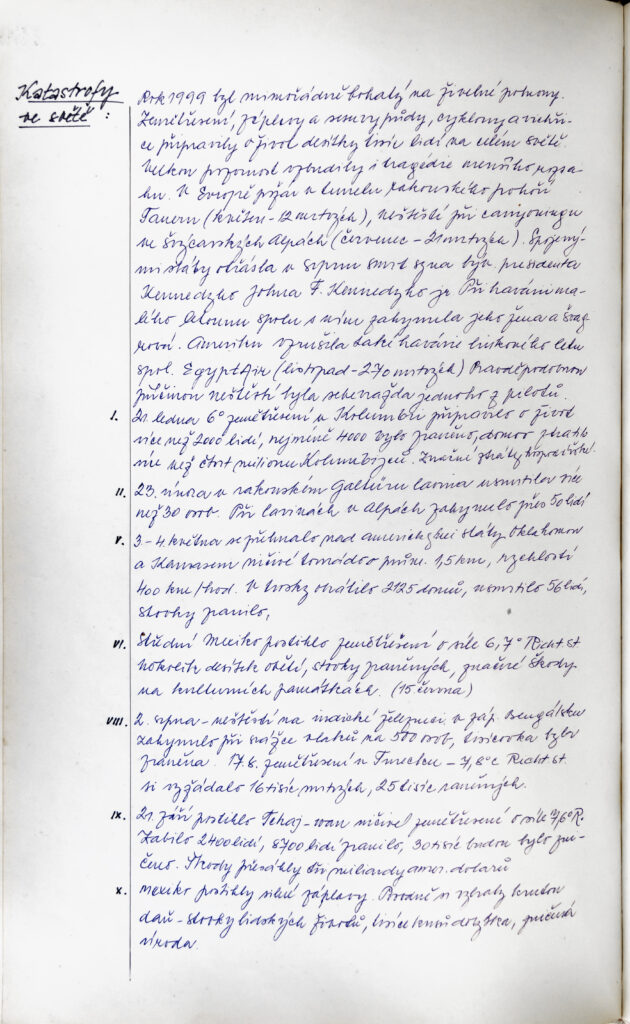 Katastrofy
ve světě :
Rok 1999 byl mimořádně bohatý na živelné pohromy.
Zemětřesení, záplavy a sesuvy půdy, cyklony a vichři-
ce připravily o život desítky tisíc lidí na celém světě.
Velkou pozornost vzbudily i tragédie menšího rozsa-
hu. V Evropě požár v tunelu rakouského pohoří
Tauern (květen - 12 mrtvých), neštěstí při canyoningu
ve švýcarských Alpách (červenec - 21 mrtvých). Spojený-
mi státy otřásla v srpnu smrt syna býv. presidenta
Kennedyho Johna F. Kennedyho jr. Při havárii ma-
lého letounu spolu s ním zahynula jeho žena a švag-
rová. Ameriku vzrušila také havárie linkového letu
spol. EgyptAir (listopad - 270 mrtvých) Pravděpodobnou
příčinou neštěstí byla sebevražda jednoho z pilotů.
I. 21. ledna 6° zemětřesení v Kolumbii připravilo o život
více než 2000 lidí, nejméně 4000 bylo zraněno, domov ztratilo
víc než čtvrt milionu Kolumbijců. Značné ztráty hospodářské.
II. 23. února v rakouském Galtüru lavina usmrtila více
než 30 osob. Při lavinách v Alpách zahynulo přes 50 lidí
V. 3.-4. května se přehnalo nad americkými státy Oklahomou
a Kansasem ničivé tornádo o prům. 1,5 km, rychlostí
400 km/hod. V trosky obrátilo 2125 domů, usmrtilo 56 lidí,
stovky zranilo,
VI. Střední Mexiko postihlo zemětřesení o síle 6,7° Richt. st.
několik desítek obětí, stovky zraněných, značné škody
na kulturních památkách. (15 června)
VIII. 2. srpna - neštěstí na indické železnici v záp. Bengálsku
zahynulo při srážce vlaků na 500 osob, tisícovka byla
zraněna. 17.8. zemětřesení v Turecku - 7,8°c Richt. st.
si vyžádalo 16 tisíc mrtvých, 25 tisíc raněných.
IX. 21. září postihlo Tchaj-wan ničivé zemětřesení o síle 7,6° R.
Zabilo 2400 lidí, 8700 lidí zranilo, 30 tisíc budov bylo zni-
čeno. Škody přesáhly tři miliardy amer. dolarů
X. Mexiko postihly silné záplavy. Povodně si vybraly krutou
daň - stovky lidských životů, tisíce kusů dobytka, zničená
úroda.